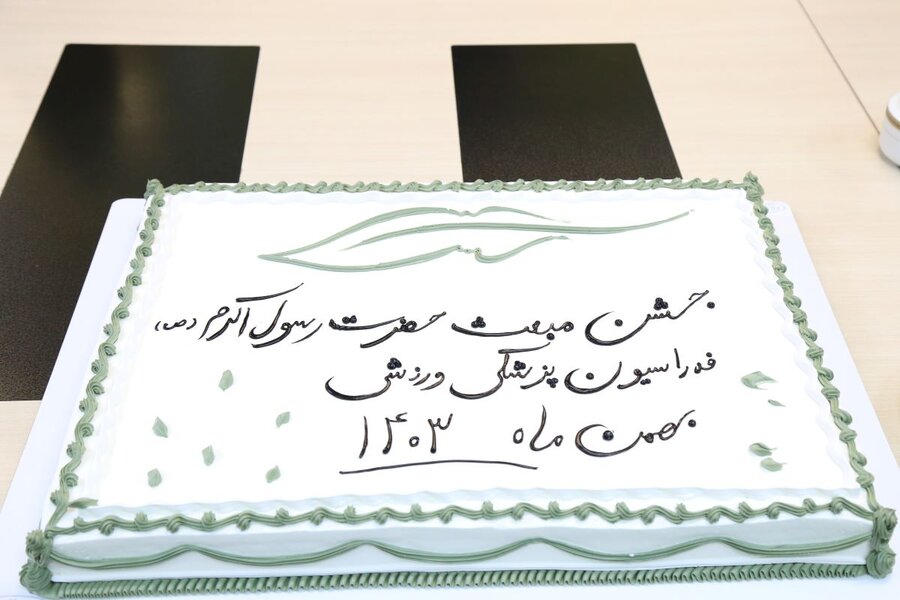 جشن مبعث حضرت رسول اکرم (ص)
فدراسیون پزشکی ورزشی
بهمن ماه ۱۴۰۳